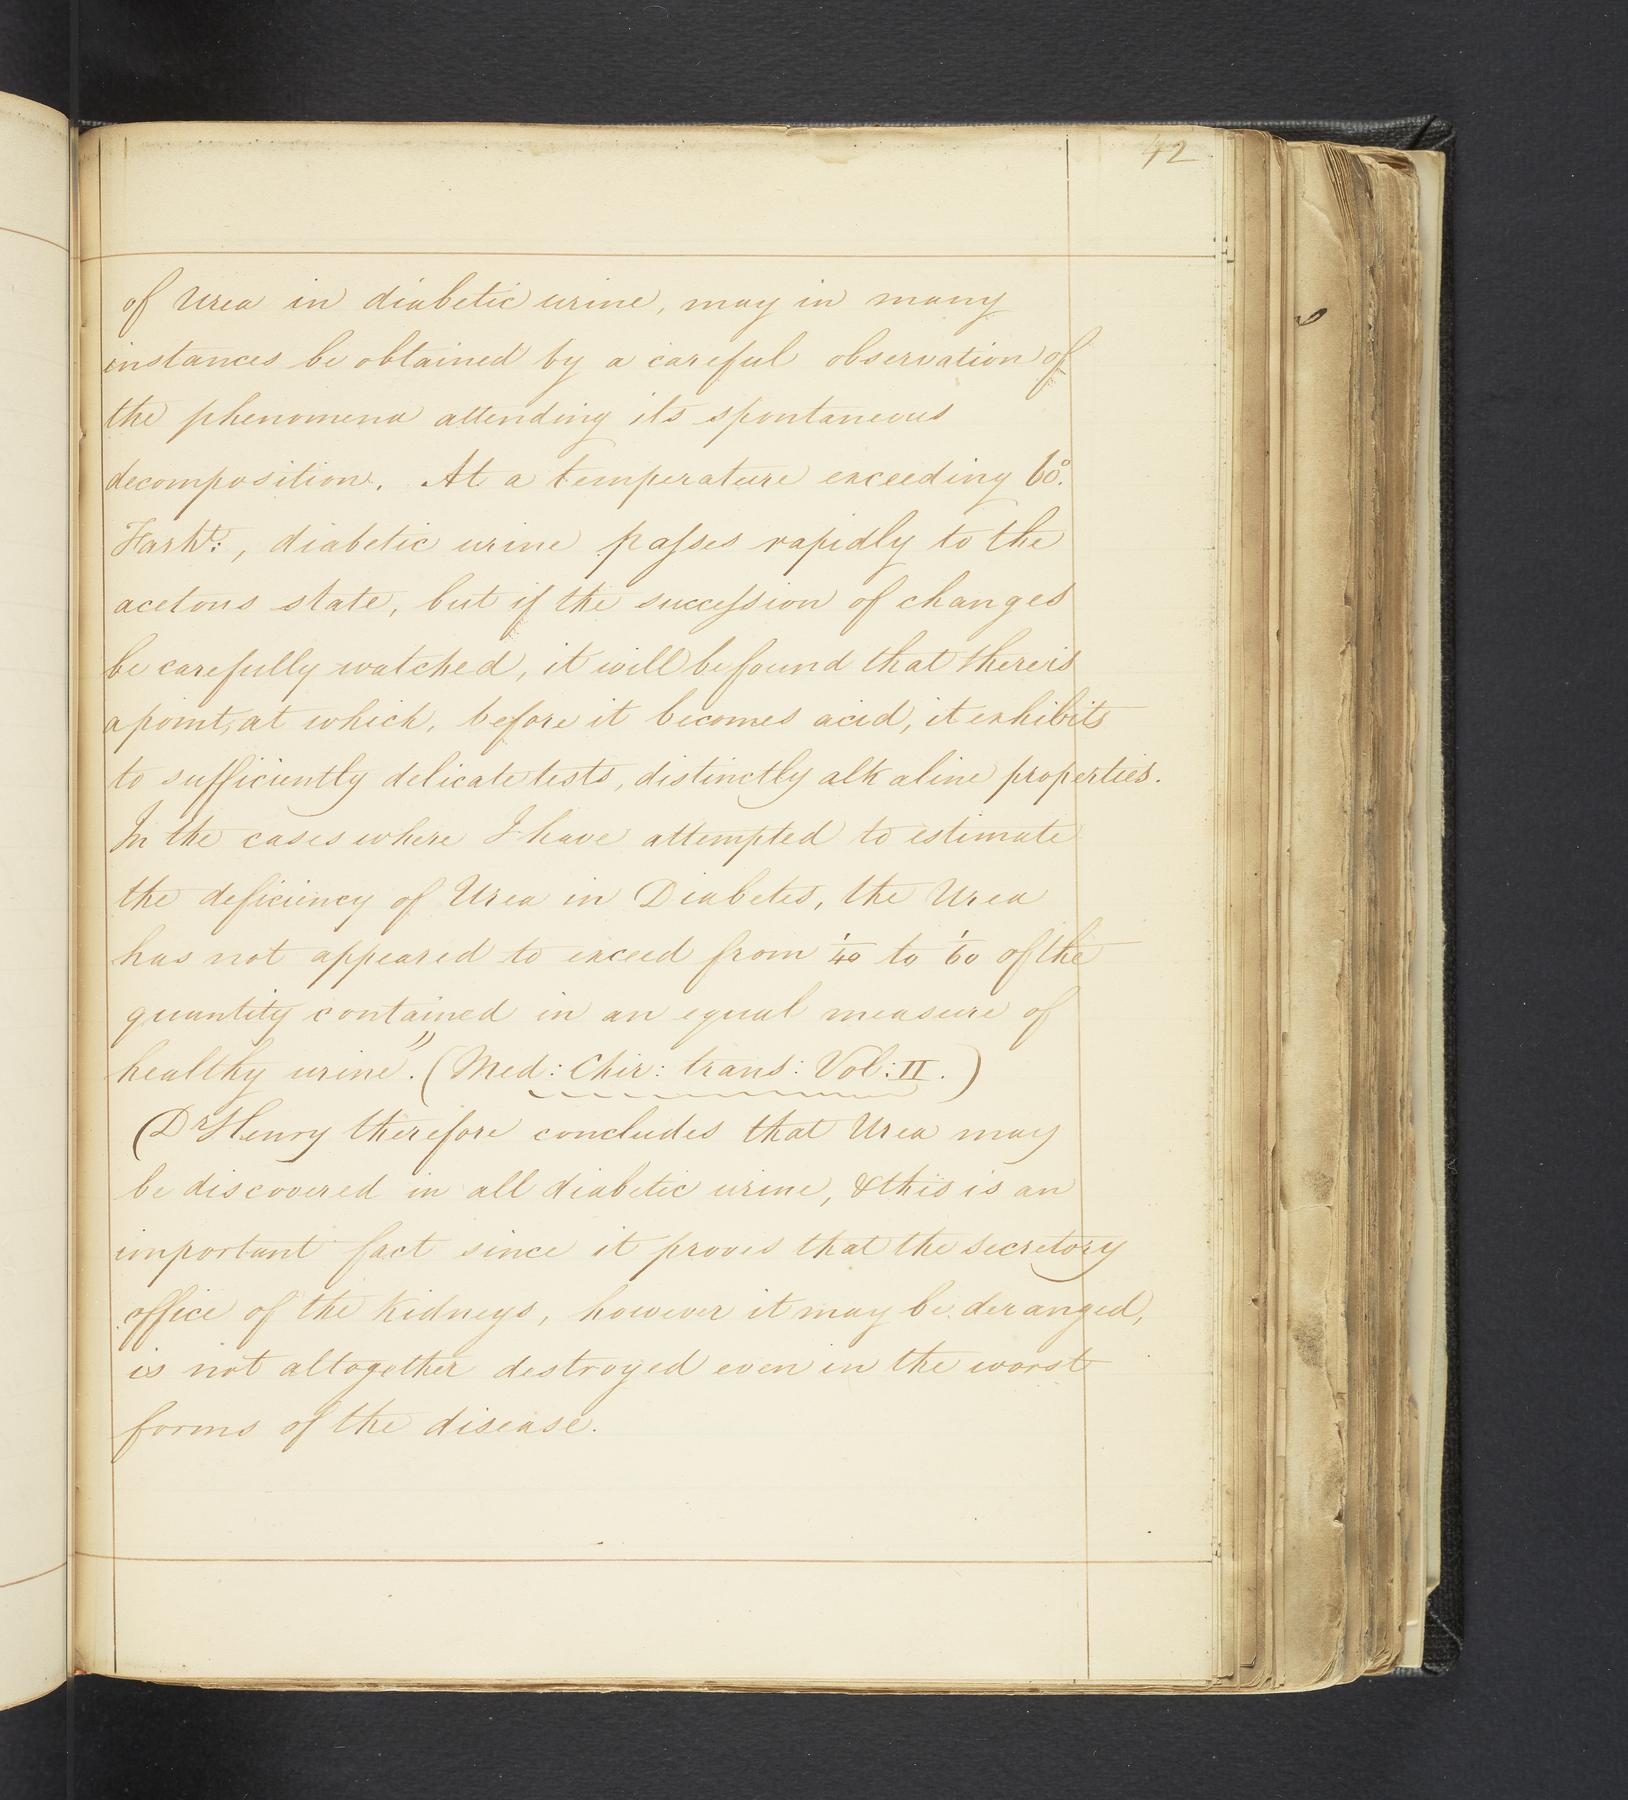 42
of Urea in diabetic urine, may in many
instances be obtained by a careful observation of
the phenomena attending its spontaneous
decomposition. At a temperature exceeding 60°.
Farht:, diabetic urine paſses rapidly to the
acetous state, but if the succeſsion of changes
be carefully watched, it will be found that there is
a point, at which, before it becomes acid, it exhibits
to sufficiently delicate tests, distinctly alkaline properties.
In the cases where I have attempted to estimate
the deficiency of Urea in Diabetes, the Urea
has not appeared to exceed from 1/40 to 1/60 of the
quantity contained in an equal measure of
healthy urine". (Med: Chir: trans: Vol: II.)
(Dr Henry therefore concludes that Urea may
be discovered in all diabetic urine, & this is an
important fact since it proves that the secretory
office of the Kidneys, however it may be deranged,
is not altogether destroyed even in the worst
forms of the disease.